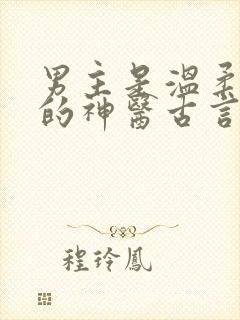 男主是溫柔
的神醫古言
程玲鳳